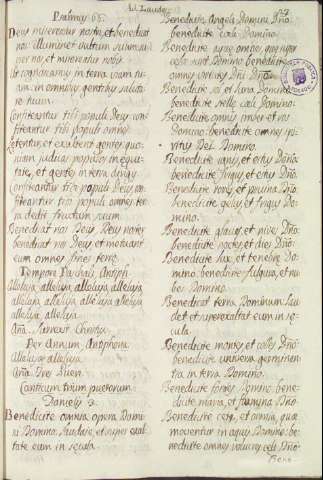 Ad Laudes
Psalmus 66.
Deus misereatur nostri, et benedicat
nobis: illuminet vultum suum su-
per nos, et misereatur nostri.
Ut cognoscamus in terra viam tu-
am: in omnibus gentibus saluta-
re tuum.
Confiteantur tibi populi Deus con-
fiteantur tibi populi omnes.
Letentur, et exultent gentes: quo-
niam judicas populos in equi-
tate, et gentes in terra dirigis
Confiteantur tibi populi Deus con-
fiteantur tibi populi omnes: ter-
ra dedit fructum suum.
Benedicat nos Deus Deus noster
benedicat nos Deus: et metuant
eum omnes fines terre.
Tempore Paschali Antiph.
Alleluya, alleluya, alleluya, alleluya,
alleluya, alleluya, alleluya, alleluya
alleluya, alleluya.
Aña. Surrexit Christus
Per Annum Antiphona.
Alleluya alleluya.
Aña. Tres Pueri.
Canticum trium puerorum
Danielis 3.
Benedicite omnia opera Domi-
ni Domino: laudate, et super exal-
tate eum in secula.
Benedicite Angeli Domini Dño:
benedicite celi Domino.
Benedicite aque omnes, que super
celos sunt Domino: benedicite
omnes virtutes Dñi Dño.
Benedicite sol et luna Domino:
benedicite stelle celi Domino.
Benedicite omnis imber et ros
Domino: benedicite omnes spi-
ritus Dei Domino.
Benedicite ignis et estus Dño:
benedicite frigus et estus Dño.
Benedicite rores et pruina Dño:
benedicite gelu et frigus Do-
mino.
Benedicite glacies et nives Dño:
benedicite noctes et dies Dño.
Benedicite lux et tenebre Do-
mino: benedicite fulgura, et nu-
bes Domino.
Benedicat terra Dominum: lau-
det et superexaltet eum in se-
cula.
Benedicite montes et colles Dño:
benedicite universa germinan-
tia in terra Domino.
Benedicite fontes Domino: bene-
dicite maria, et flumina Dño.
Benedicite cete, et omnia, quæ
moventur in aquis Domino: be-
nedicite omnes volucres celi Dño.
Bene-